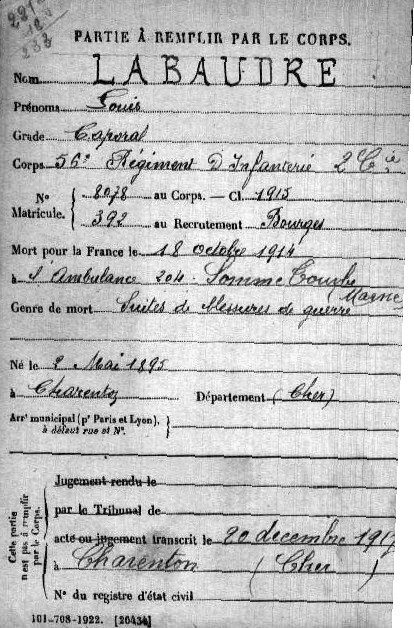 PARTIE À REMPLIR PAR LE CORPS.
Nom LABAUDRE
Prénoms Louis
Grade Caporal
Corps 56e Régiment D'Infanterie 2e Cie
No 8078 au Corps. — Cl. 1915
Matricule. 392 au Recrutement Bourges
Mort pour la France le 18 octobre 1914
à l'Ambulance 204. Somme Tourbe
(Marne)
Genre de mort Suites de blessures de guerre
Né le 2 Mai 1895
à Charenton Département (Cher)
Arrt municipal (pr Paris et Lyon),
à défaut rue et No.
Cette partie
n'est pas à remplir
par le Corps.
Jugement rendu le
par le Tribunal de
acte ou jugement transcrit le 20 decembre
à Charenton (Cher)
No du registre d'état civil
101-708-1922. [26434]